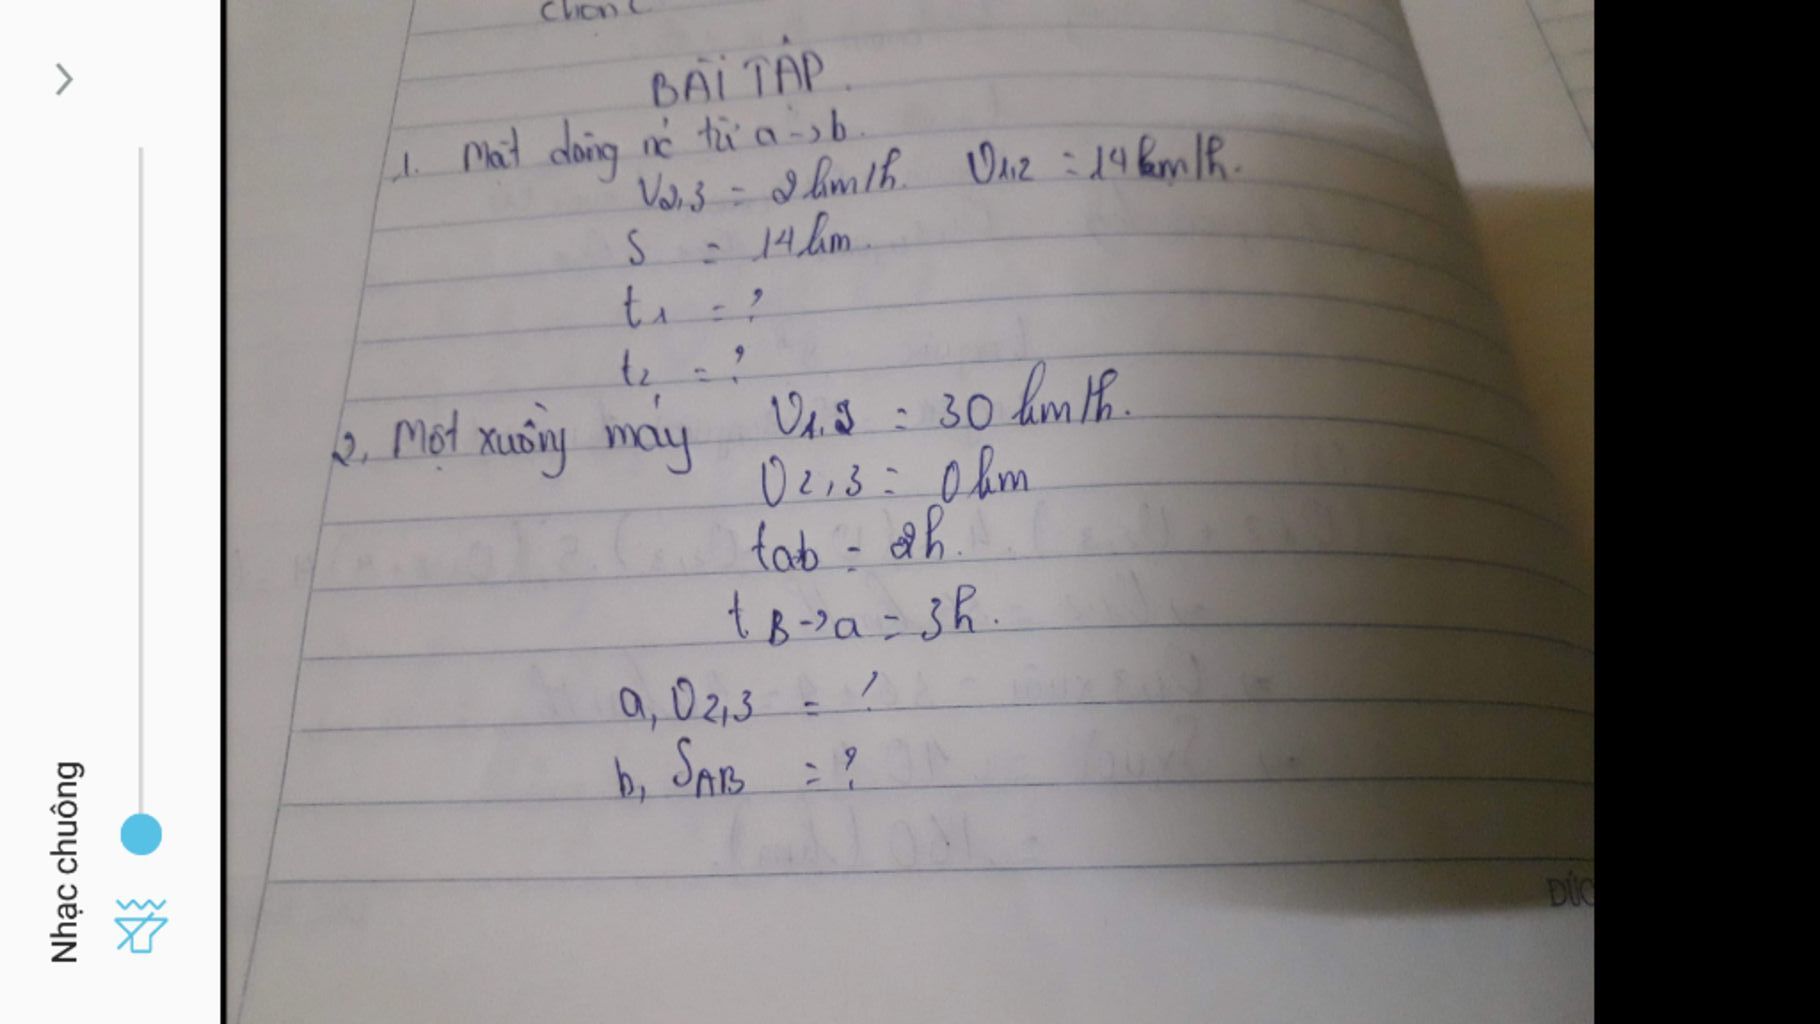 BÀI TẬP.
1. Một dòng nc từ a -> b.
V2,3 = 2 km/h. V1,2 = 14 km/h.
S = 14 km.
t1 = ?
t2 = ?
2. Một xuồng máy V1.2 = 30 km/h.
V2,3 = 0 km
tab = 2h.
t B->a = 3h.
a, V2,3 = ?
b, SAB = ?
ĐỨC
Nhạc chuông